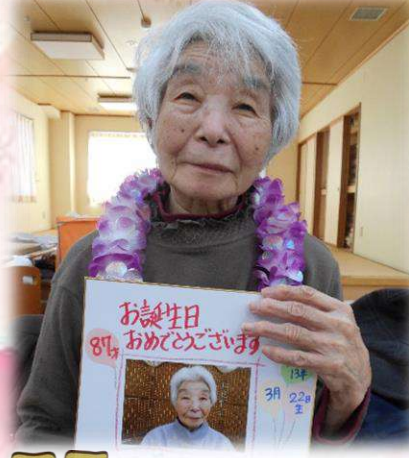 お誕生日
おめでとうございます
87才
13年
3月22日
生